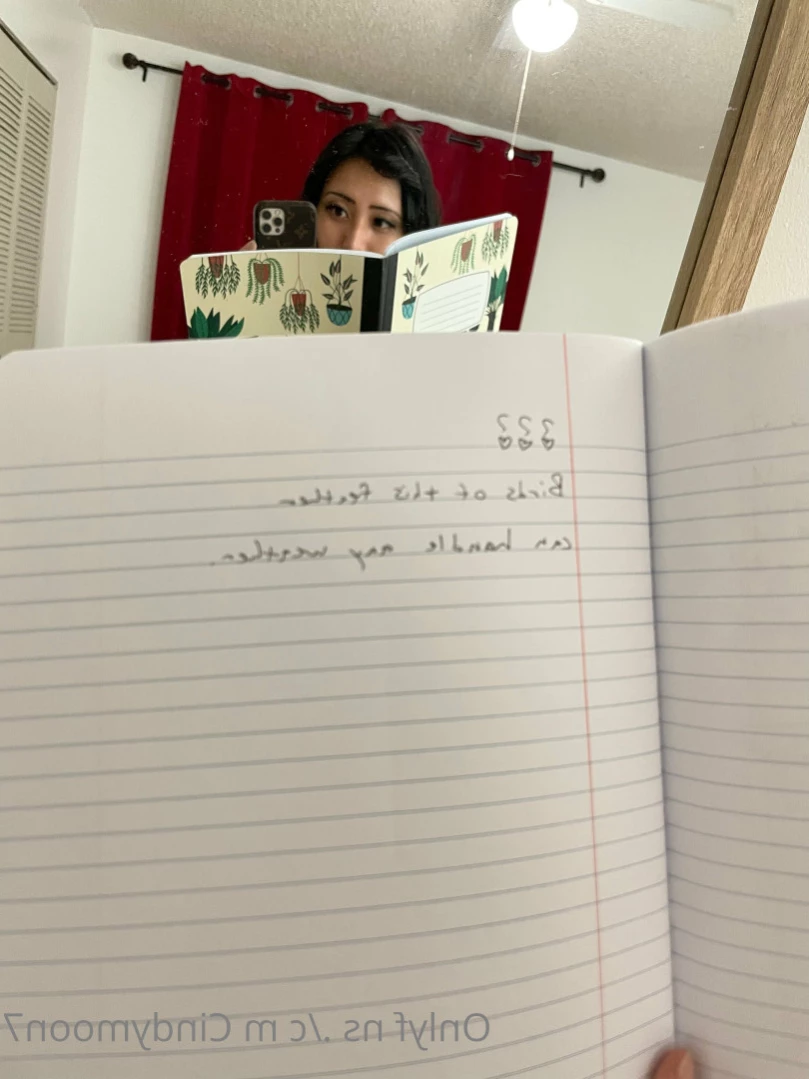 ???
Birds of this feather
can handle any weather.
Onlyf ns ./c m Cindymoon7